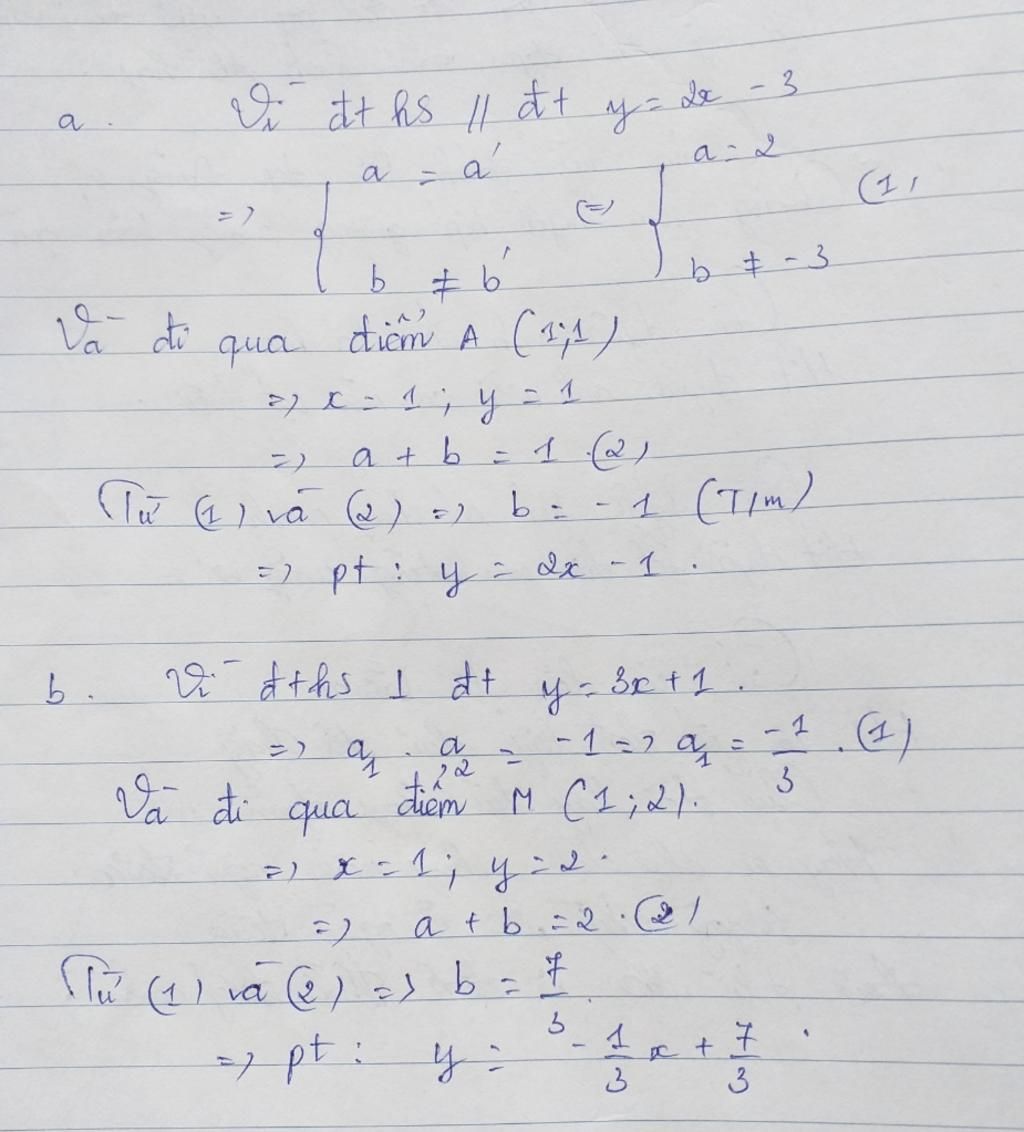 a. Vì đths // đt y = 2x - 3
=> { a = a' <=> { a = 2 (1)
b ≠ b' b ≠ -3
Và đi qua điểm A (1;1)
=> x = 1 ; y = 1
=> a + b = 1 . (2)
Từ (1) và (2) => b = - 1 (T/m)
=> pt : y = 2x - 1 .
b. Vì đths ⊥ đt y = 3x + 1 .
=> a₁ . a₂ = -1 => a₁ = -1/3 . (1)
Và đi qua điểm M (1 ; 2).
=> x = 1 ; y = 2 .
=> a + b = 2 . (2)
Từ (1) và (2) => b = 7/3 .
=> pt : y = - 1/3 x + 7/3 .